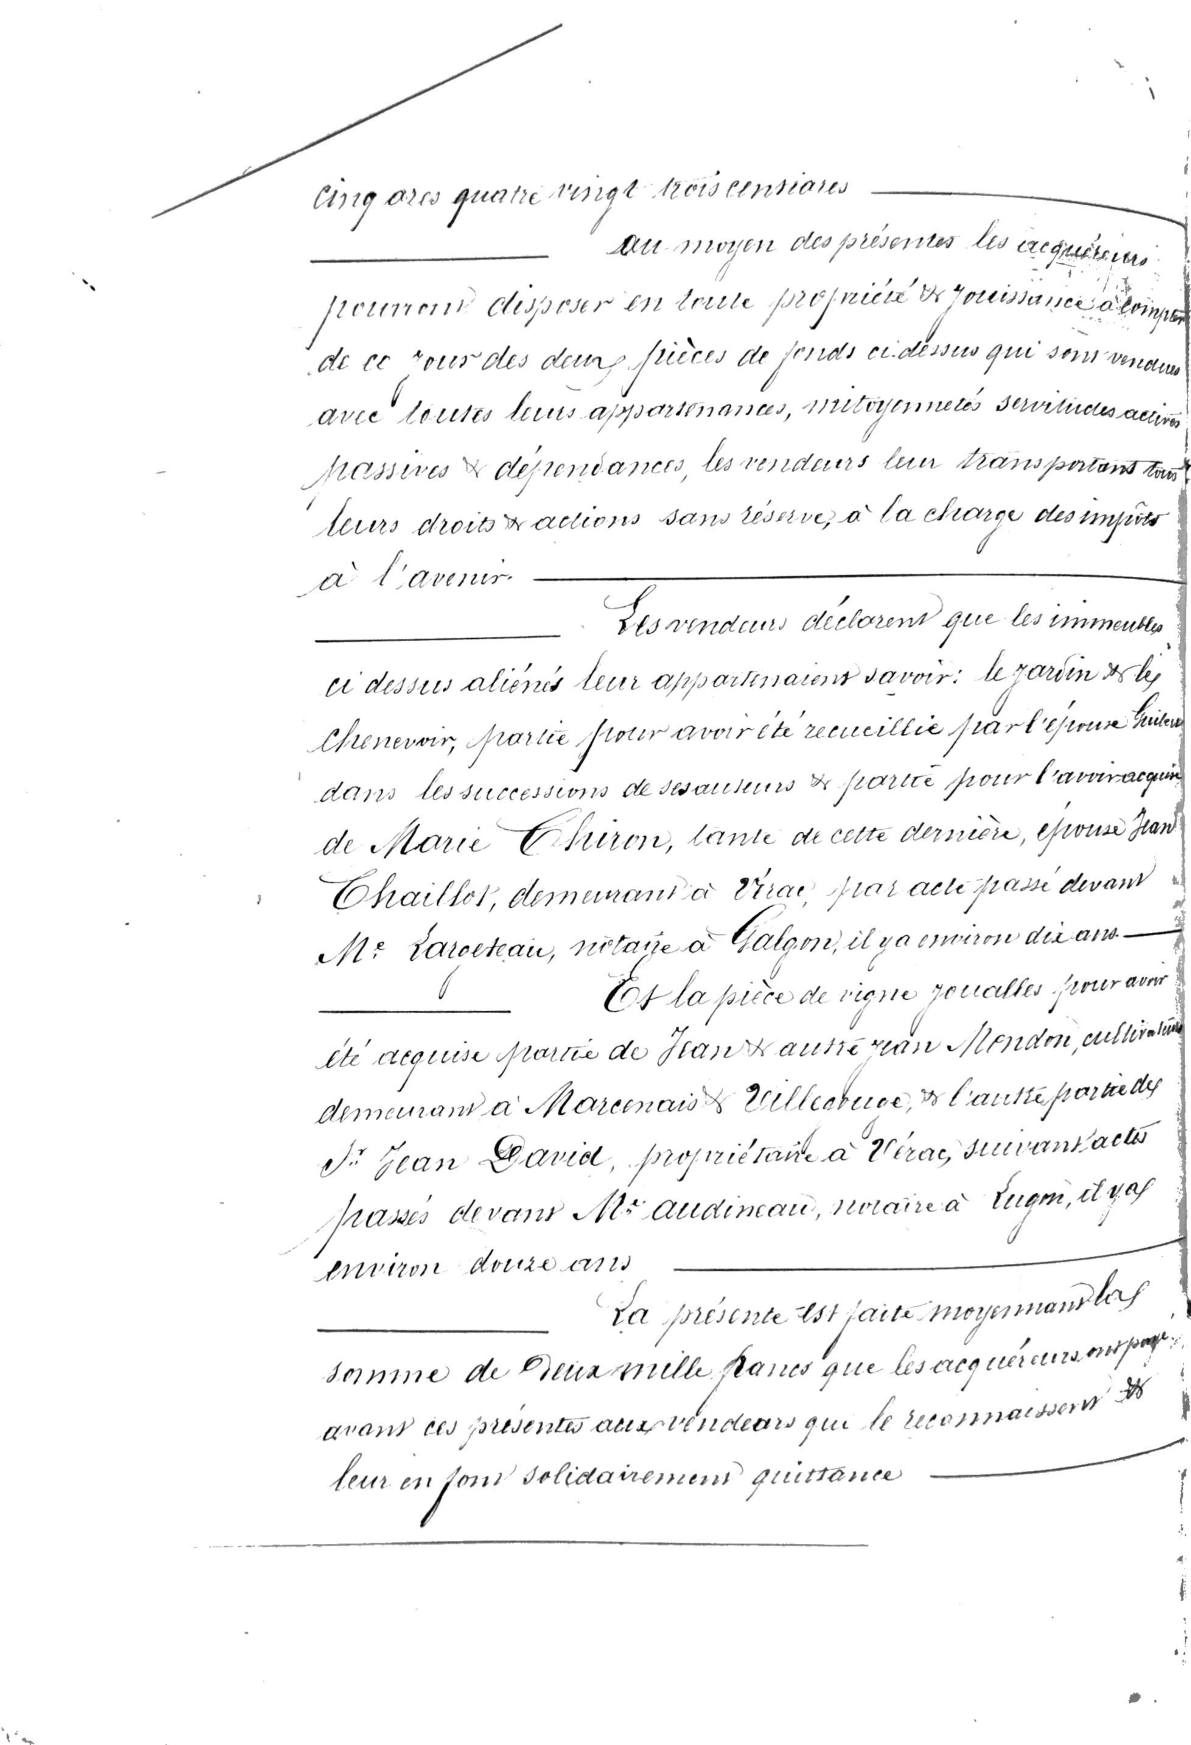 cinq ares quatre vingt trois centiares
au moyen des présentes les acquéreurs
pourront disposer en toute propriété & jouissance à compter
de ce jour des deux pièces de fonds ci-dessus qui sont vendues
avec toutes leurs appartenances, mitoyennetés servitudes actives
passives & dépendances, les vendeurs leur transportant tous
leurs droits & actions sans réserve, à la charge des impôts
à l'avenir.
Les vendeurs déclarent que les immeubles
ci dessus aliénés leur appartenaient savoir: le jardin & le
chenevoir, partie pour avoir été recueillie par l'épouse
dans les successions de ses auteurs & partie pour l'avoir acquise
de Marie Chiron, tante de cette dernière, épouse Jean
Chaillot, demeurant à Vérac, par acte passé devant
Me Largeteau, notaire à Galgon, il y a environ dix ans
Et la pièce de vigne joualles pour avoir
été acquise partie de Jean & autre Jean Mondon, cultivateurs
demeurant à Marcenais & Villegouge, & l'autre partie de
Sr Jean David, propriétaire à Vérac, suivant actes
passés devant Me Audineau, notaire à Lugon, il y a
environ douze ans
La présente est faite moyennant la
somme de Deux mille francs que les acquéreurs ont payé
avant ces présentes aux vendeurs qui le reconnaissent &
leur en font solidairement quittance